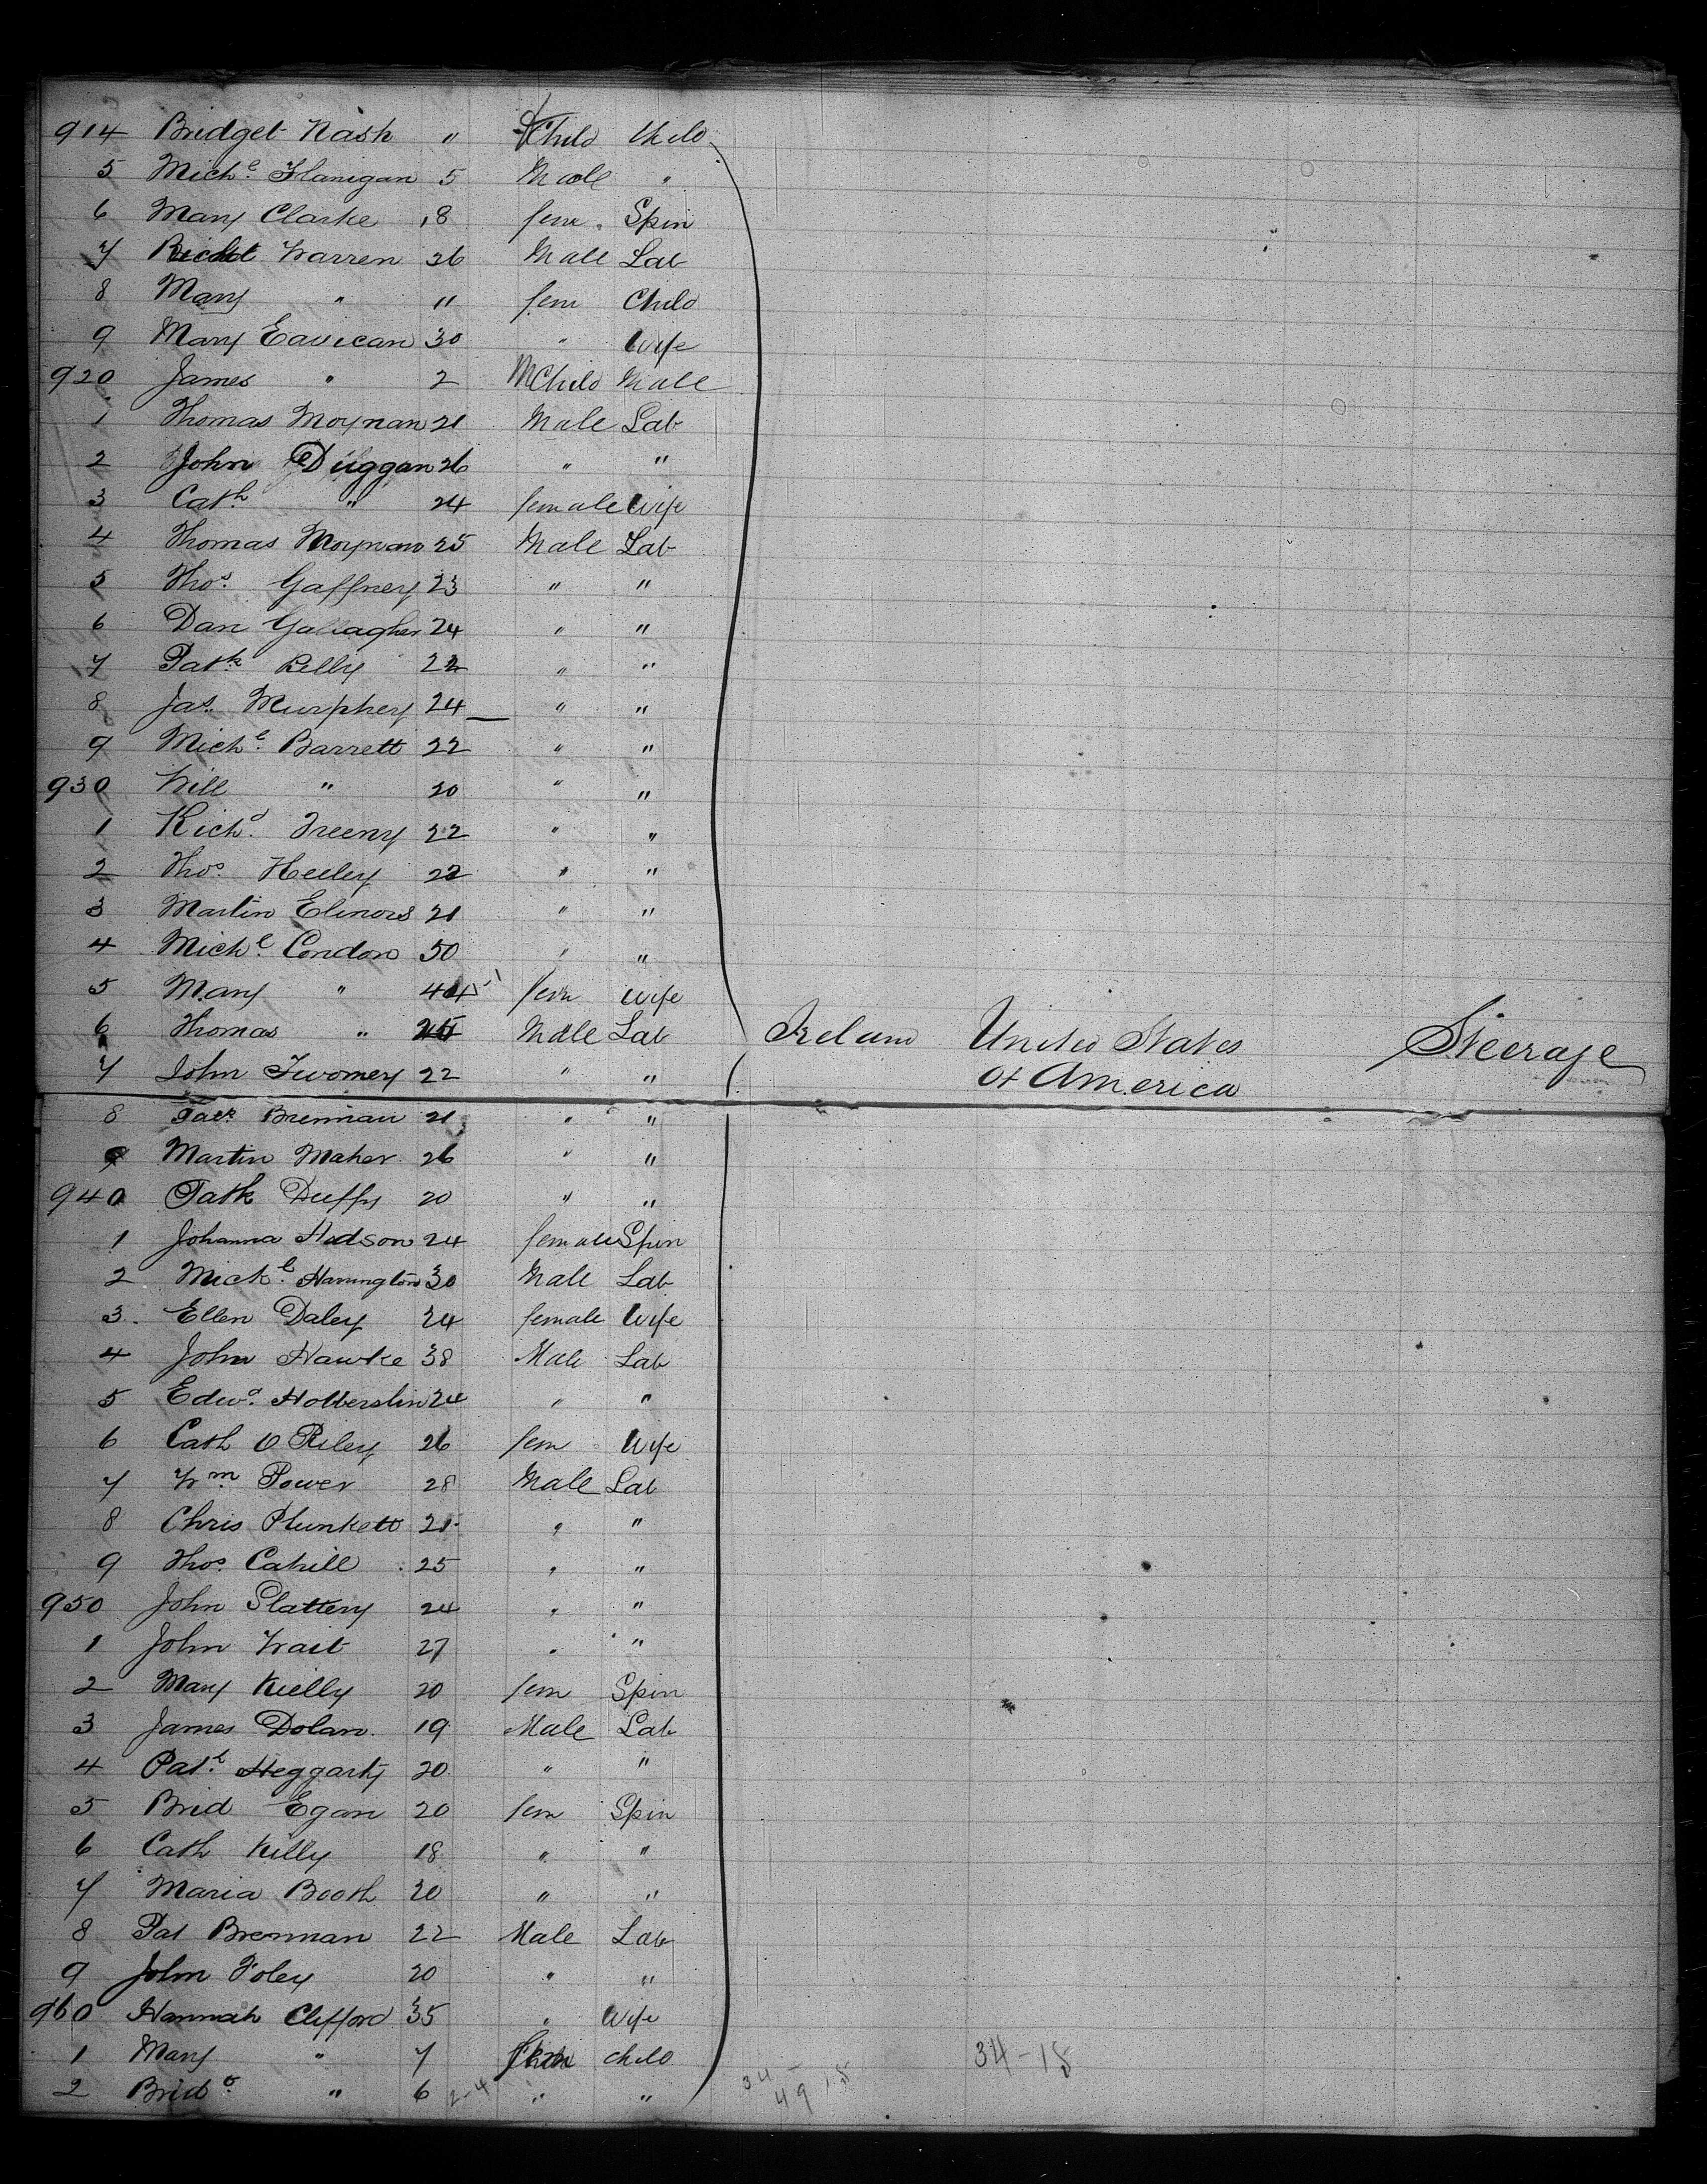 914 Bridget Nash " Child Child
5 Mich.l Flanigan 5 Male "
6 Mary Clarke 18 fem. Spin
7 Warren 26 Male Lab
8 Mary " 11 fem Child
9 Mary Eavican 30 " Wife
920 James " 2 M Child Male
1 Thomas Moynan 21 Male Lab
2 John Duggan 26 " "
3 Cath " 24 female Wife
4 Thomas Moynan 25 Male Lab
5 Thos. Gaffney 23 " "
6 Dan Gallagher 24 " "
7 Patk. Kelly 22 " "
8 Jas. Murphey 24 " "
9 Mich.l Barrett 22 " "
930 Will " 20 " "
1 Richd. Freeny 22 " "
2 Thos. Heeley 22 " "
3 Martin Elinors 21 " "
4 Mich.l Condon 50 " "
5 Mary " 44 fem Wife
6 Thomas " Male Lab Ireland United States Steerage
7 John Twomey 22 " " of America
8 Patk. Brennan 21 " "
9 Martin Maher 26 " "
940 Patk Duffy 20 " "
1 Johanna Hudson 24 female Spin
2 Mich.l Harrington 30 Male Lab
3. Ellen Daley 24 female Wife
4 John Hawke 38 Male Lab
5 Edwd. 24 " "
6 Cath O Riley 26 fem Wife
7 Wm. Power 28 Male Lab
8 Chris Plunkett 21 " "
9 Thos. Cahill 25 " "
950 John Slattery 24 " "
1 John Wait 27 " "
2 Mary Kielly 20 fem Spin
3 James Dolan 19 Male Lab
4 Pat. Heggarty 20 " "
5 Brid Egan 20 fem Spin
6 Cath Killy 18 " "
7 Maria Booth 20 " "
8 Pat Brennan 22 Male Lab
9 John Foley 20 " "
960 Hannah Clifford 35 " Wife
1 Mary " 7 Child 34-18
2 Brid " 6 2-4 " " 34 49 18